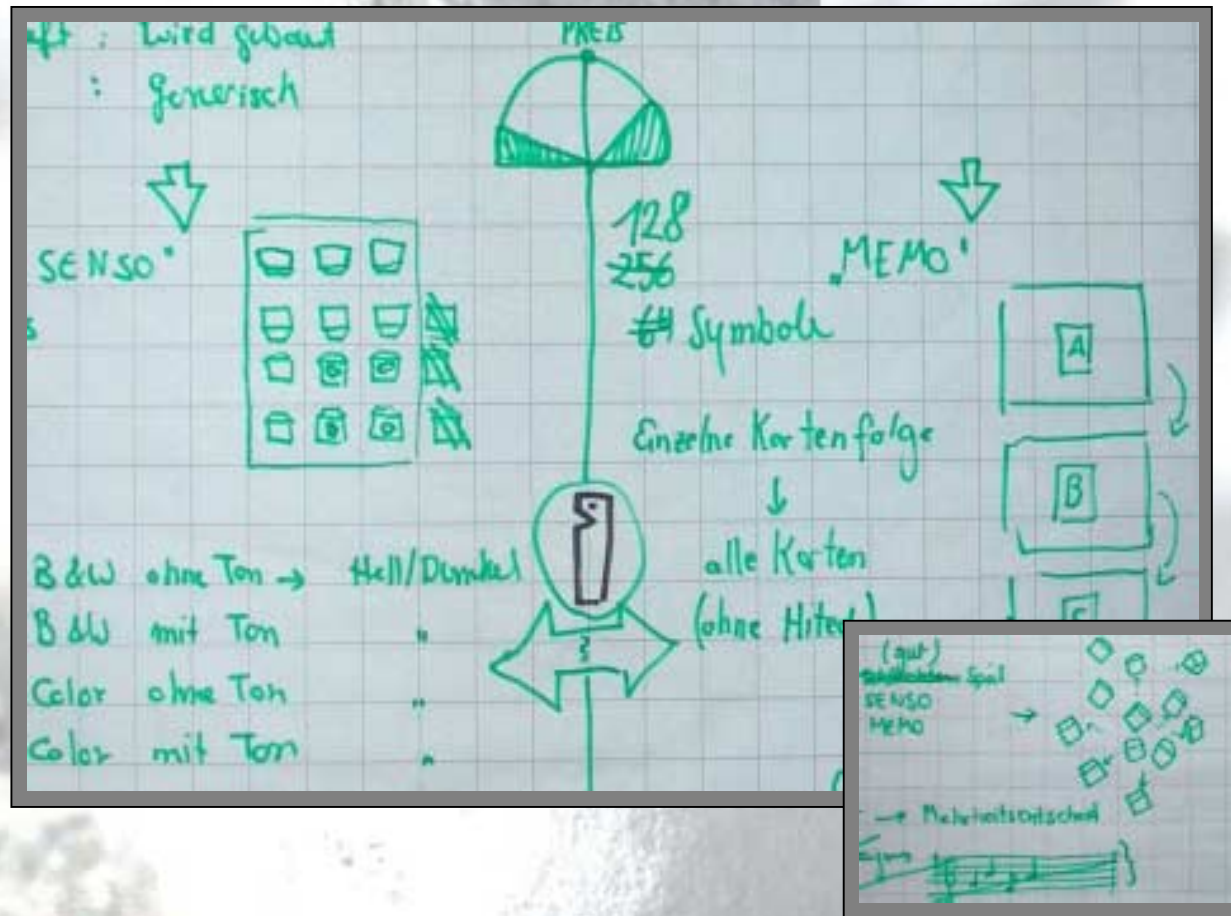 : wird gebaut
: generisch
PREIS
SENSO"
128
256
64 Symbole
„MEMO"
A
B
Einzelne Kartenfolge
↓
alle Karten
(ohne
B&W ohne Ton → Hell/Dunkel
B&W mit Ton "
Color ohne Ton "
Color mit Ton "
(gut)
Spiel
SENSO
MEMO
→
→ Mehrheitsentscheid